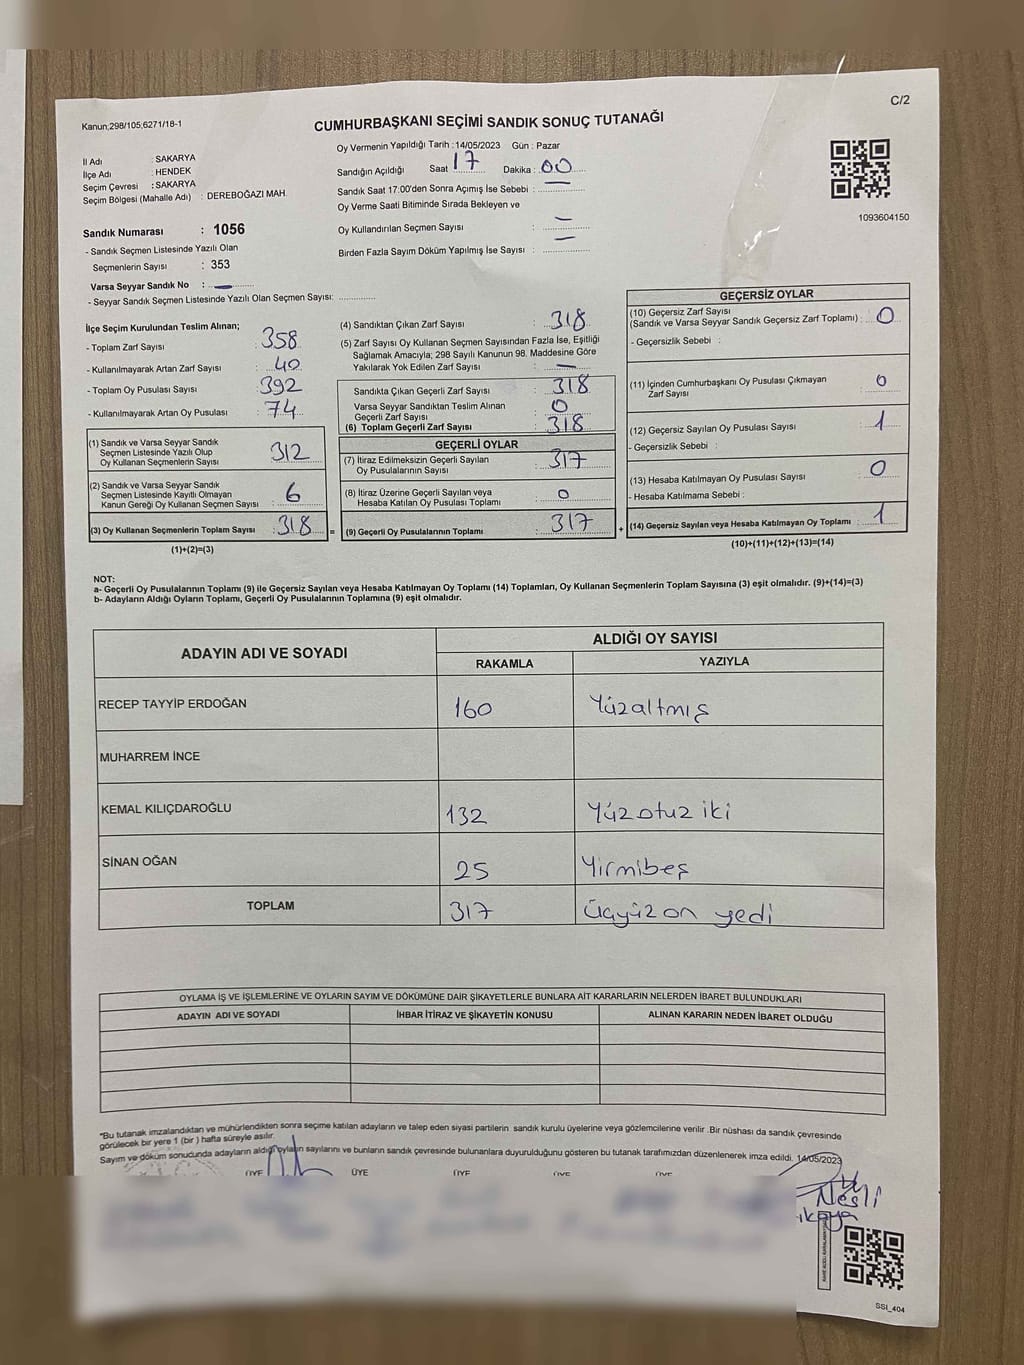 C/2
Kanun,298/105,6271/18-1
CUMHURBAŞKANI SEÇİMİ SANDIK SONUÇ TUTANAĞI
İl Adı : SAKARYA
İlçe Adı : HENDEK
Seçim Çevresi : SAKARYA
Seçim Bölgesi (Mahalle Adı) : DEREBOĞAZI MAH.
Sandık Numarası : 1056
- Sandık Seçmen Listesinde Yazılı Olan
Seçmenlerin Sayısı : 353
Varsa Seyyar Sandık No : —
- Seyyar Sandık Seçmen Listesinde Yazılı Olan Seçmen Sayısı:
Oy Vermenin Yapıldığı Tarih :14/05/2023 Gün : Pazar
Sandığın Açıldığı Saat 17 Dakika : 00
Sandık Saat 17:00'den Sonra Açımış İse Sebebi : —
Oy Verme Saati Bitiminde Sırada Bekleyen ve
Oy Kullandırılan Seçmen Sayısı : —
Birden Fazla Sayım Döküm Yapılmış İse Sayısı : —
1093604150
İlçe Seçim Kurulundan Teslim Alınan;
- Toplam Zarf Sayısı : 358
- Kullanılmayarak Artan Zarf Sayısı : 40
- Toplam Oy Pusulası Sayısı : 392
- Kullanılmayarak Artan Oy Pusulası : 74
(1) Sandık ve Varsa Seyyar Sandık
Seçmen Listesinde Yazılı Olup
Oy Kullanan Seçmenlerin Sayısı : 312
(2) Sandık ve Varsa Seyyar Sandık
Seçmen Listesinde Kayıtlı Olmayan
Kanun Gereği Oy Kullanan Seçmen Sayısı : 6
(3) Oy Kullanan Seçmenlerin Toplam Sayısı : 318
(1)+(2)=(3)
(4) Sandıktan Çıkan Zarf Sayısı : 318
(5) Zarf Sayısı Oy Kullanan Seçmen Sayısından Fazla İse, Eşitliği
Sağlamak Amacıyla; 298 Sayılı Kanunun 98. Maddesine Göre
Yakılarak Yok Edilen Zarf Sayısı : —
Sandıkta Çıkan Geçerli Zarf Sayısı : 318
Varsa Seyyar Sandıktan Teslim Alınan
Geçerli Zarf Sayısı : 0
(6) Toplam Geçerli Zarf Sayısı : 318
=
GEÇERLİ OYLAR
(7) İtiraz Edilmeksizin Geçerli Sayılan
Oy Pusulalarının Sayısı : 317
(8) İtiraz Üzerine Geçerli Sayılan veya
Hesaba Katılan Oy Pusulası Toplamı : 0
(9) Geçerli Oy Pusulalarının Toplamı : 317
+
GEÇERSİZ OYLAR
(10) Geçersiz Zarf Sayısı
(Sandık ve Varsa Seyyar Sandık Geçersiz Zarf Toplamı) : 0
- Geçersizlik Sebebi :
(11) İçinden Cumhurbaşkanı Oy Pusulası Çıkmayan
Zarf Sayısı : 0
(12) Geçersiz Sayılan Oy Pusulası Sayısı : 1
- Geçersizlik Sebebi :
(13) Hesaba Katılmayan Oy Pusulası Sayısı : 0
- Hesaba Katılmama Sebebi :
(14) Geçersiz Sayılan veya Hesaba Katılmayan Oy Toplamı : 1
(10)+(11)+(12)+(13)=(14)
NOT:
a- Geçerli Oy Pusulalarının Toplamı (9) ile Geçersiz Sayılan veya Hesaba Katılmayan Oy Toplamı (14) Toplamları, Oy Kullanan Seçmenlerin Toplam Sayısına (3) eşit olmalıdır. (9)+(14)=(3)
b- Adayların Aldığı Oyların Toplamı, Geçerli Oy Pusulalarının Toplamına (9) eşit olmalıdır.
ADAYIN ADI VE SOYADI
ALDIĞI OY SAYISI
RAKAMLA YAZIYLA
RECEP TAYYİP ERDOĞAN 160 Yüzaltmış
MUHARREM İNCE
KEMAL KILIÇDAROĞLU 132 Yüzotuz iki
SİNAN OĞAN 25 Yirmibeş
TOPLAM 317 Üçyüz on yedi
OYLAMA İŞ VE İŞLEMLERİNE VE OYLARIN SAYIM VE DÖKÜMÜNE DAİR ŞİKAYETLERLE BUNLARA AİT KARARLARIN NELERDEN İBARET BULUNDUKLARI
ADAYIN ADI VE SOYADI İHBAR İTİRAZ VE ŞİKAYETİN KONUSU ALINAN KARARIN NEDEN İBARET OLDUĞU
*Bu tutanak imzalandıktan ve mühürlendikten sonra seçime katılan adayların ve talep eden siyasi partilerin sandık kurulu üyelerine veya gözlemcilerine verilir .Bir nüshası da sandık çevresinde
görülecek bir yere 1 (bir ) hafta süreyle asılır.
Sayım ve döküm sonucunda adayların aldığı oyların sayılarını ve bunların sandık çevresinde bulunanlara duyurulduğunu gösteren bu tutanak tarafımızdan düzenlenerek imza edildi. 14/05/2023
ÜYE ÜYE ÜYE ÜYE ÜYE
Nesli
SSI_404